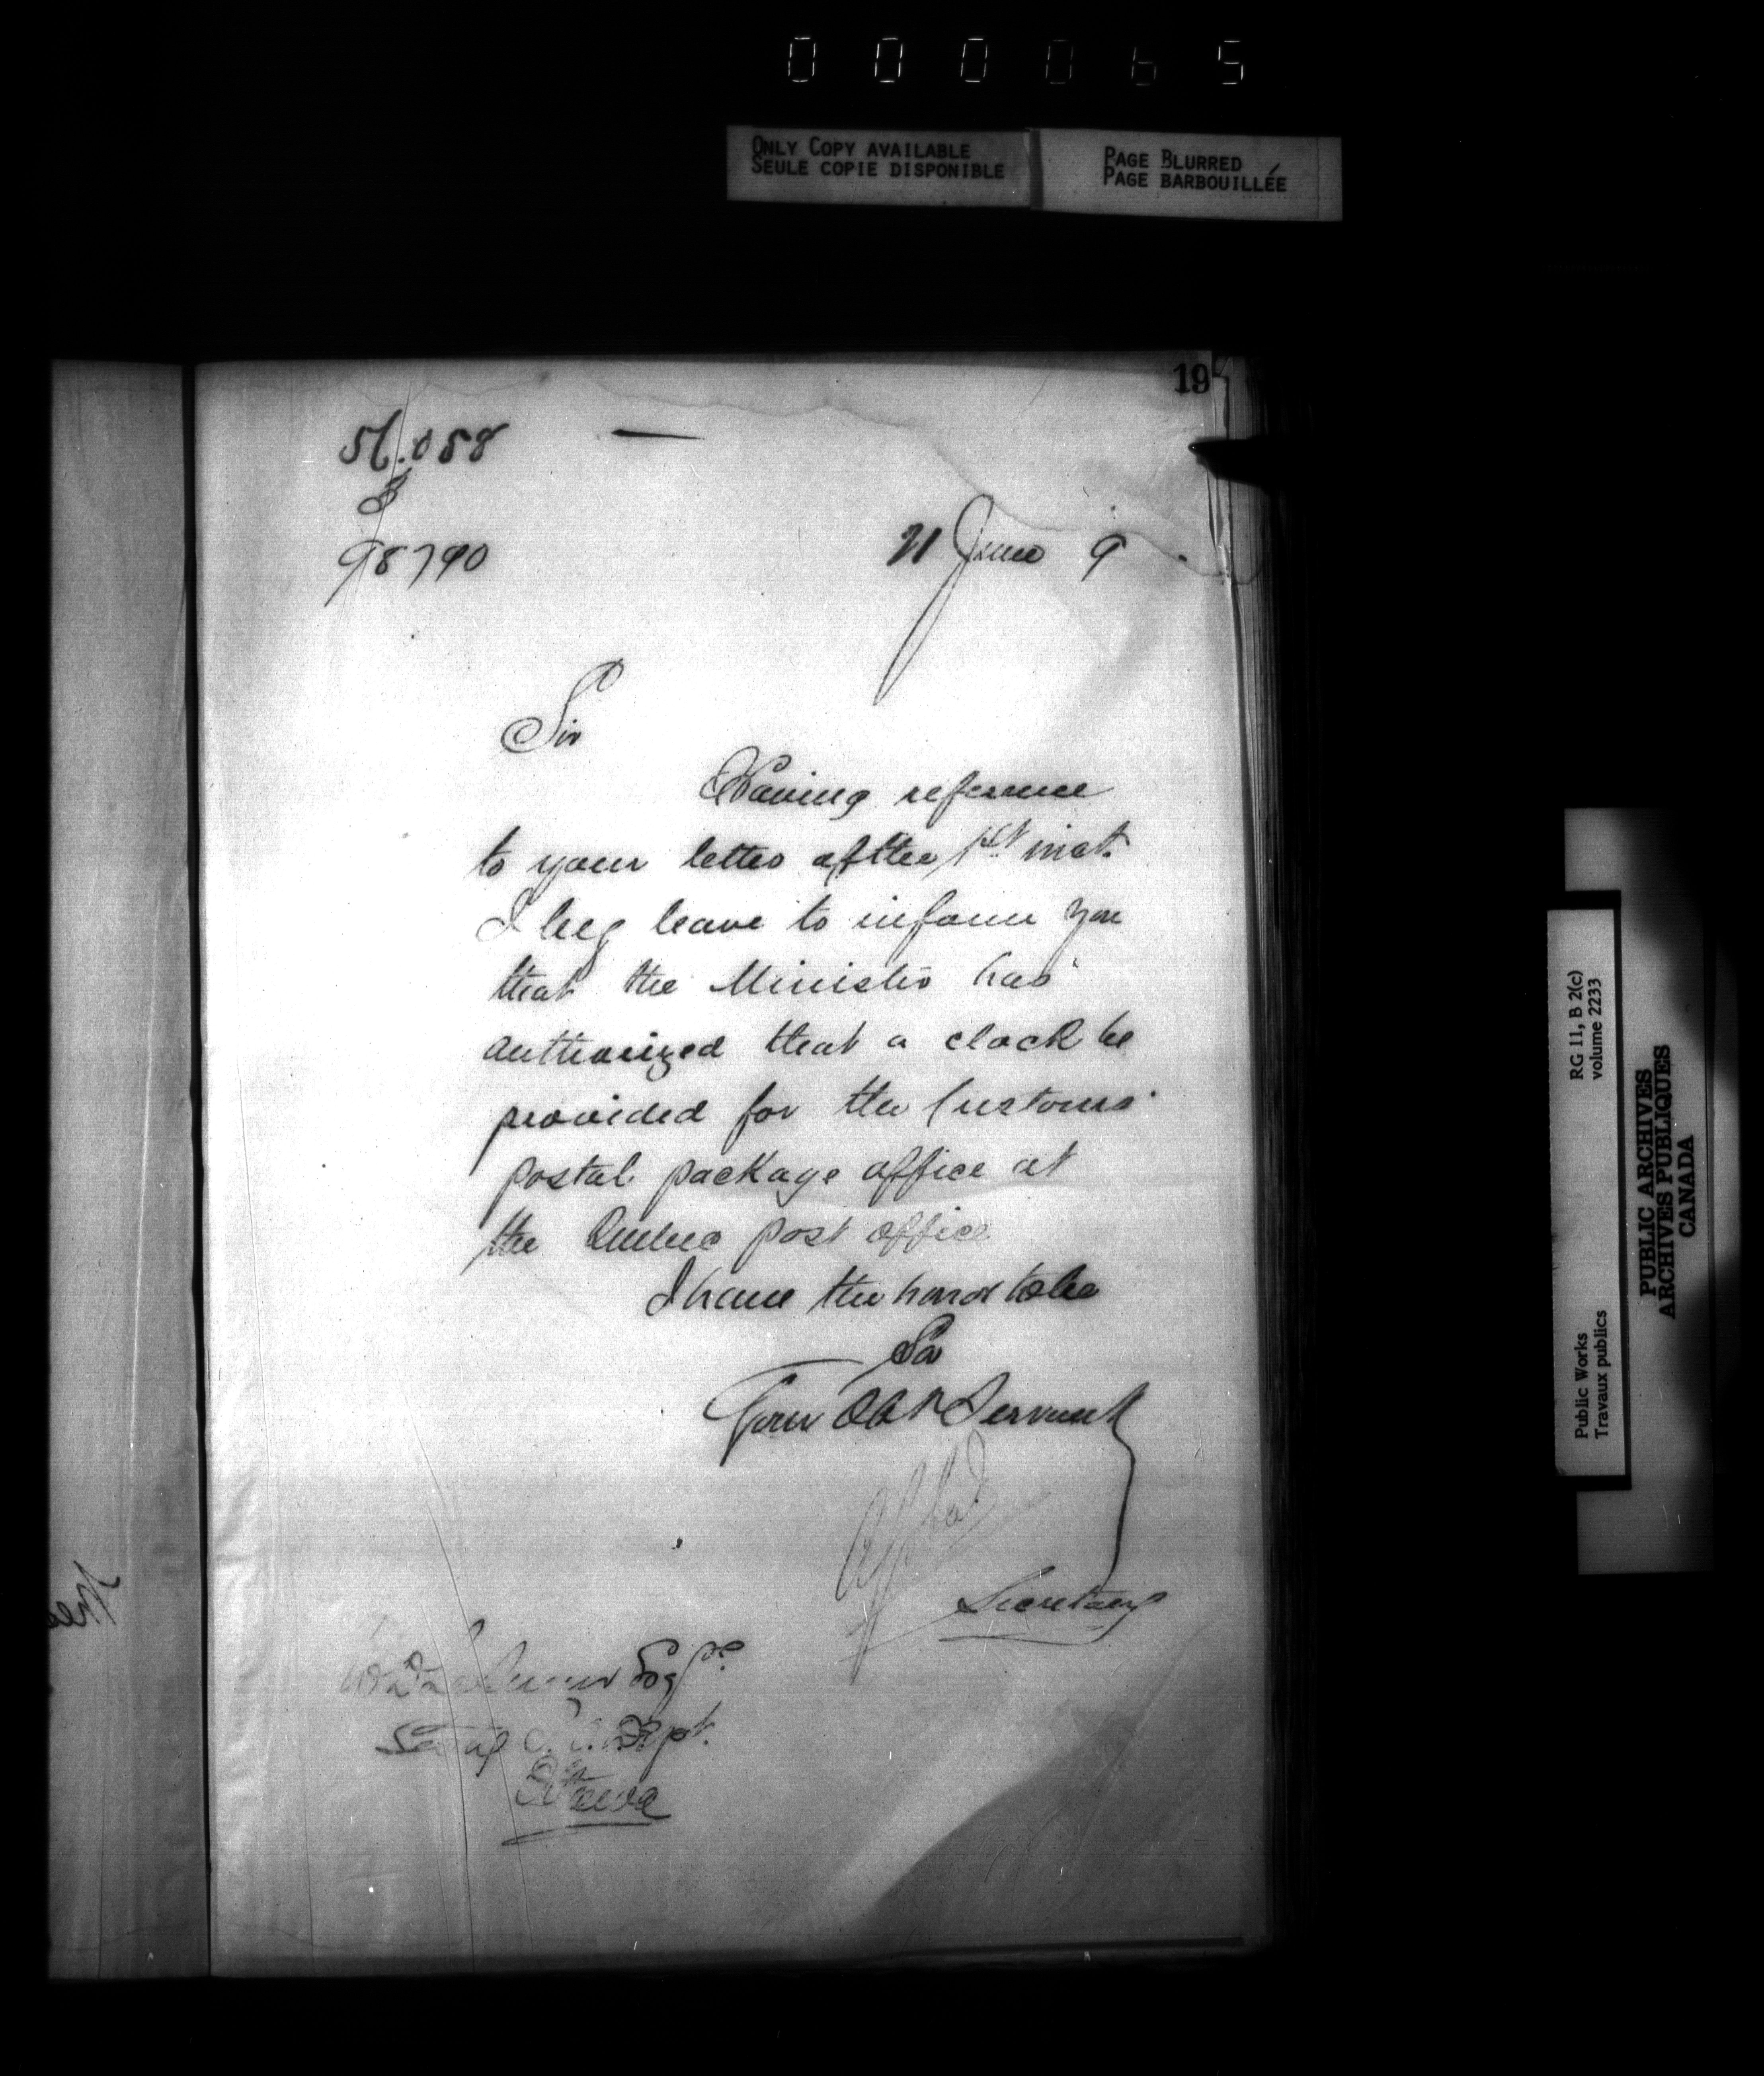 000065
ONLY COPY AVAILABLE
SEULE COPIE DISPONIBLE
PAGE BLURRED
PAGE BARBOUILLÉE
19
56.058
98790
21 June 9
Sir
Having reference
to your letter of the 1st inst.
I beg leave to inform you
that the Minister has
authorized that a clock be
provided for the Customs
postal package office at
the Quebec post office
I have the honor to be
Sir
Your Obt Servant
Secretary
Esqre
Dept.
Ottawa
RG 11, B 2(c)
volume 2233
Public Works
Travaux publics
PUBLIC ARCHIVES
ARCHIVES PUBLIQUES
CANADA